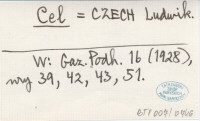 Cel = CZECH Ludwik.
W: Gaz. Podh. 16 (1928),
nry 39, 42, 43, 51.